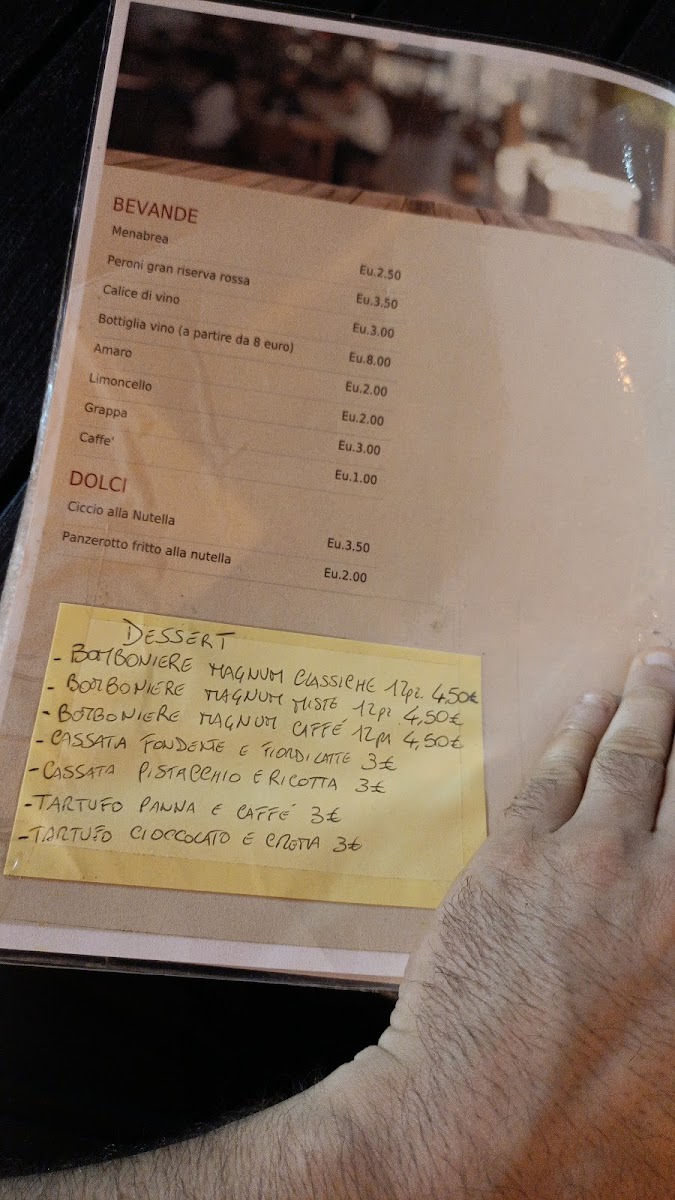 BEVANDE
Menabrea Eu.2.50
Peroni gran riserva rossa Eu.3.50
Calice di vino Eu.3.00
Bottiglia vino (a partire da 8 euro) Eu.8.00
Amaro Eu.2.00
Limoncello Eu.2.00
Grappa Eu.3.00
Caffe' Eu.1.00
DOLCI
Ciccio alla Nutella Eu.3.50
Panzerotto fritto alla nutella Eu.2.00
DESSERT
- BOMBONIERE MAGNUM CLASSICHE 12pz. 4,50€
- BOMBONIERE MAGNUM MISTE 12pz. 4,50€
- BOMBONIERE MAGNUM CAFFÉ 12pz 4,50€
- CASSATA FONDENTE E FIORDILATTE 3€
- CASSATA PISTACCHIO E RICOTTA 3€
- TARTUFO PANNA E CAFFÉ 3€
- TARTUFO CIOCCOLATO E CREMA 3€